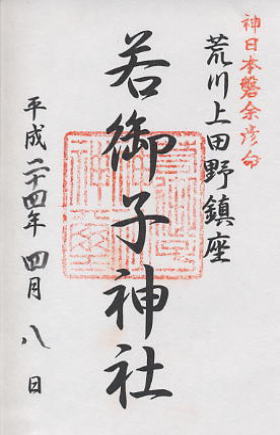 神日本磐余彦命
荒川上田野鎮座
若御子神社
平成二十四年 四月 八 日